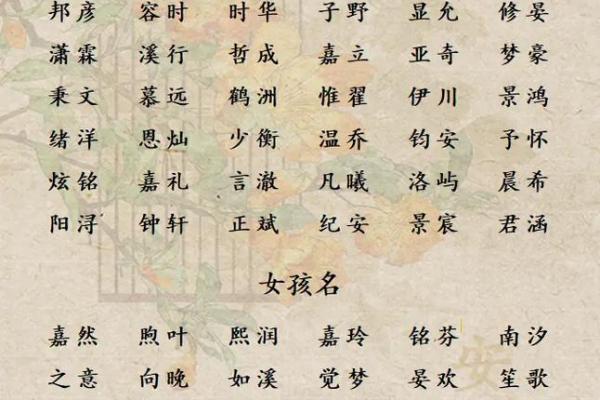 邦彦 容时 时华 子野 显允 修晏
潇霖 溪行 哲成 嘉立 亚奇 梦豪
秉文 慕远 鹤洲 惟翟 伊川 景鸿
绪洋 恩灿 少衡 温乔 钧安 予怀
炫铭 嘉礼 言澈 凡曦 洛屿 晨希
阳浔 钟轩 正斌 纪安 景宸 君涵
女孩名
嘉然 煦叶 熙润 嘉玲 铭芬 南汐
之意 向晚 如溪 觉梦 晏欢 笙歌
安